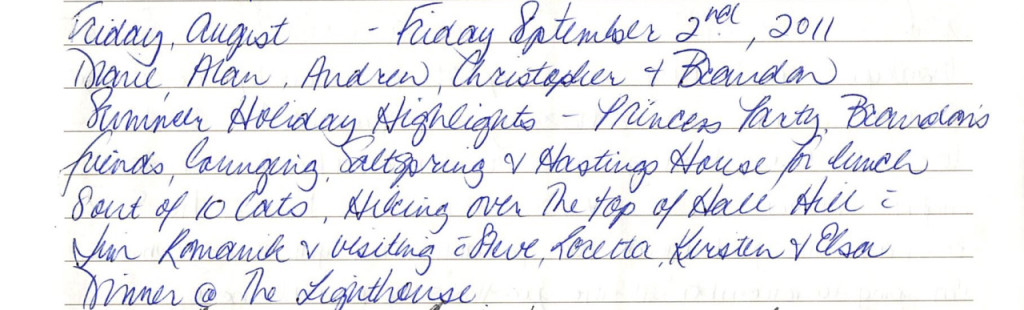 Friday, August - Friday September 2nd, 2011
Diane, Alan, Andrew, Christopher + Brandon
Summer Holiday Highlights - Princess Party, Brandon's
friends, lounging, Saltspring & Hastings House for lunch
8 out of 10 Cats, Hiking over The top of Hall Hill c̄
Jim Romanik & visiting c̄ Steve, Loretta, Kirsten & Elsa
Dinner @ The Lighthouse.